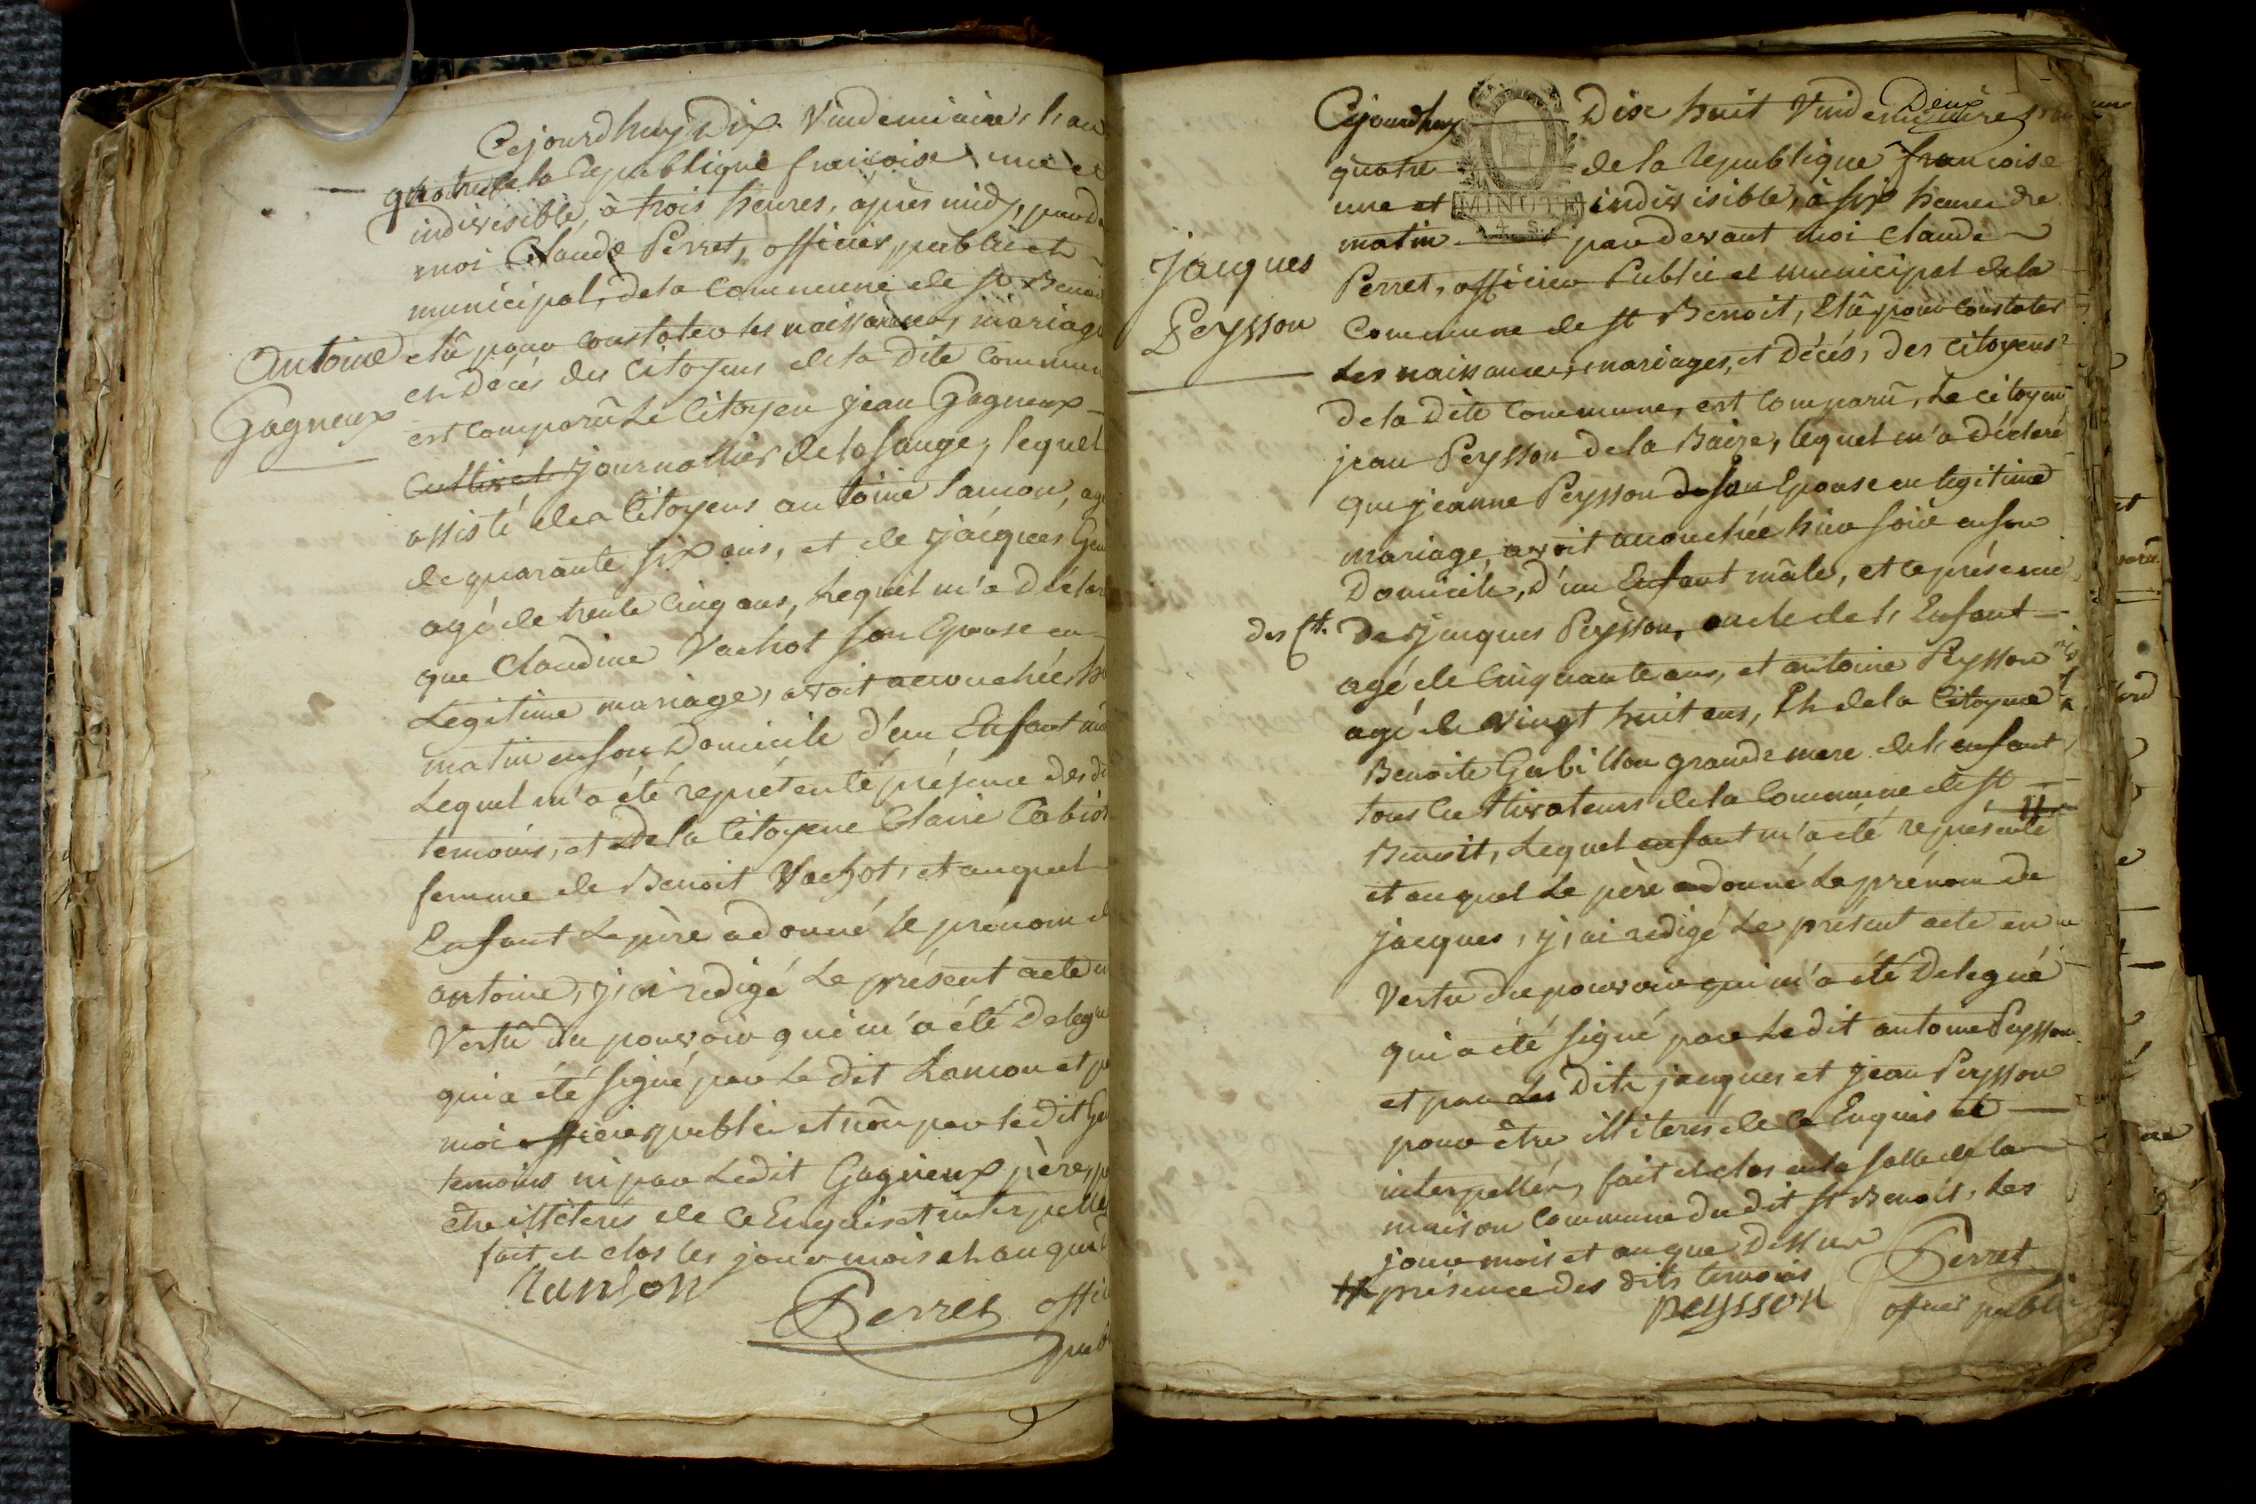 Cejourdhuy Dix Vindemiaire, l'an
quatre de la Republique françoise une et
indivisible, à trois heures, après midy, parde
moi Claude Perret, officier, public et
municipal, de la Commune de st Benoi
Antoine
Gagneux
elû pour constater les naissances, mariage
et Décés des Citoyens de la dite Commun
est comparû Le Citoyen jean Gagneux
Cultivat journallier de la sauge, lequel
assisté des Citoyens antoine Lancon, agé
de quarante six ans, et de jacques
agé de trente Cinq ans, Lequel m'a Déclar
que Claudine Vachot son Epouse en
Legitime mariage, avoit accouchée
matin en son Domicile d'un Enfant
Lequel m'a été représenté présence des
temoins, et de la Citoyene Claire
femme de Benoit Vachot, et auquel
Enfant Le père a donné le prénom
antoine, j'ai redigé Le présent acte en
Vertû du pouvoir qui m'a été Delegu
qui a été signé par Le dit Lancon et
moi officier public et non par le dit
temoins ni par Ledit Gagneux père,
etre illiterés de ce Enquis et interpellés
fait et clos les jour mois et an que
Lanson
Perret offi
pub
Cejourdhuy Dix huit Vindemiaire
Deux
quatre de la Republique françoise
une et MINUTE indivisible, à six heures de
matin par devant moi Claude
Jacques
Peysson
Perret, officier Public et municipal de la
Commune de st Benoit, Elû pour constater
Les naissances, mariages, et Décés, des Citoyens
de la Dite Commune, est Comparû, Le Citoyen
jean Peysson de la Baise, lequel m'a Déclaré
que jeanne Peysson son Epouse en legitime
mariage, avoit accouchée hier soir en son
Domicile, d'un Enfant mâle, et ce présence
des Ct. de jacques Peysson, oncle de l'Enfant
agé de Cinquante ans, et antoine Peysson
agé de vingt huit ans, Et de la Citoyene
Benoite Gubillon grande mere de l'enfant,
tous Cultivateurs de la Commune de st
Benoit, Lequel enfant m'a été représenté
et auquel Le père a donné Le prénom de
jacques, j'ai redigé Le présent acte en
Vertu du pouvoir qui m'a été Delegué
qui a été signé par Ledit antoine Peysson
et par les Dits jacques et jean Peysson
pour être illiterés de ce Enquis et
interpellés, fait et clos en la salle de la
maison Commune du dit st Benoit, Les
jour mois et an que Dessus
présence des dits temoins
Perret
Peysson
officier public